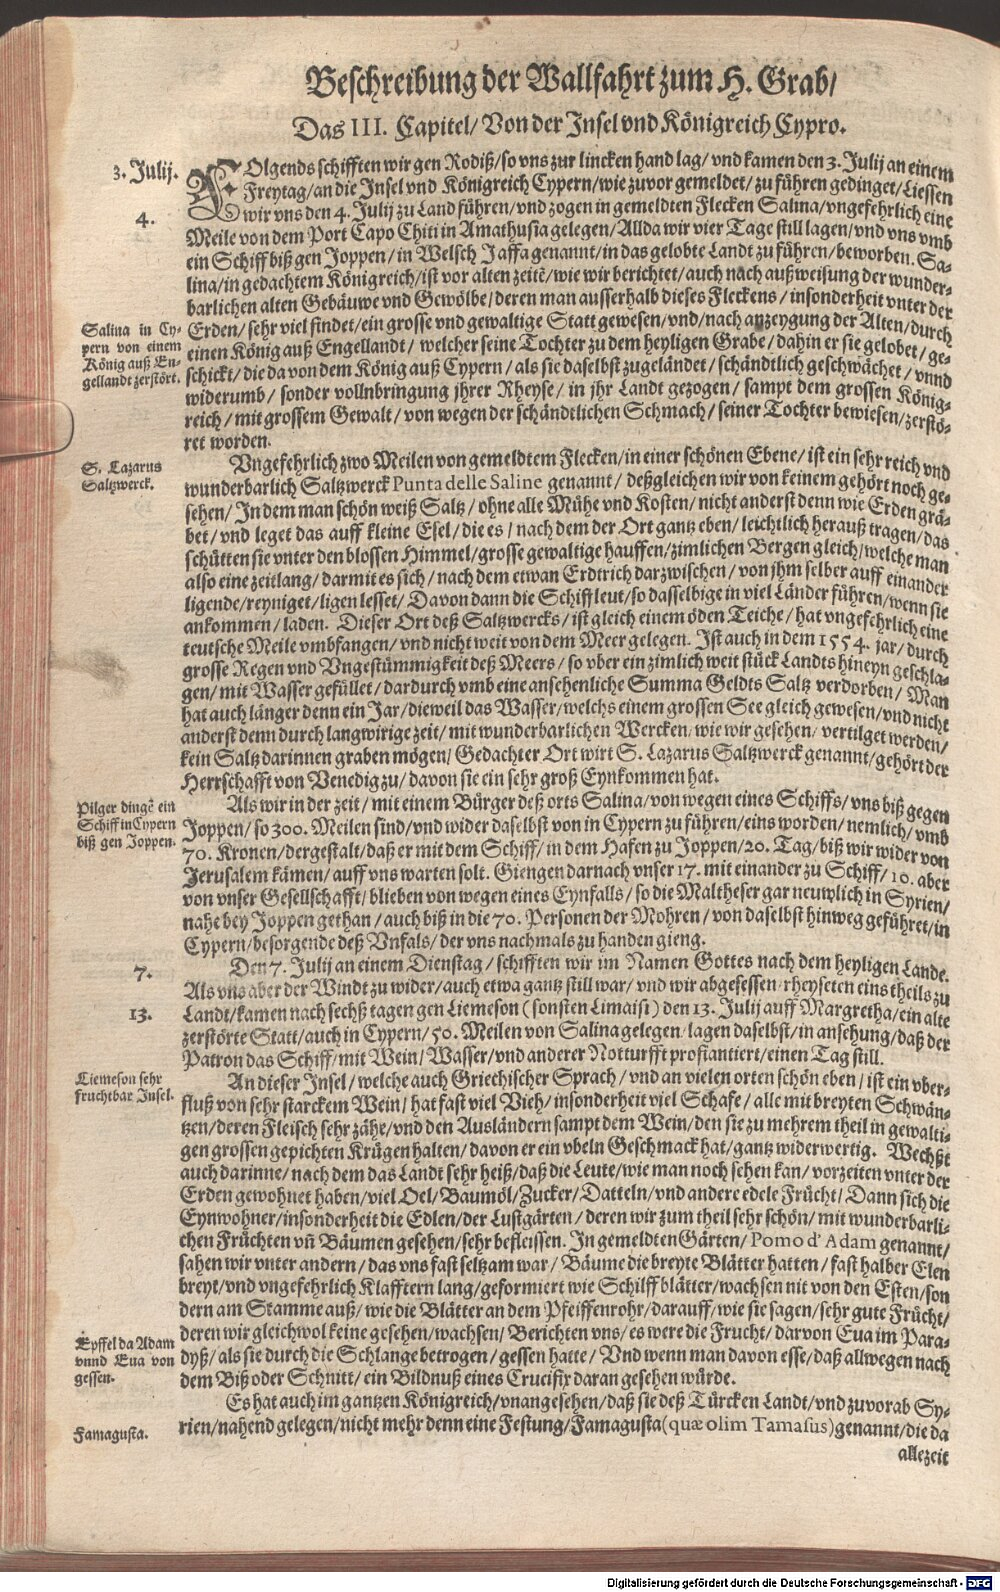 Beschreibung der Wallfahrt zum H. Grab/
Das III. Capitel/ Von der Insel vnd Königreich Cypro.
3. Julij.
FOlgends schifften wir gen Rodiß/ so vns zur lincken hand lag/ vnd kamen den 3. Julij an einem
Freytag/ an die Insel vnd Königreich Cypern/ wie zuvor gemeldet/ zu führen gedinget/ Liessen
4.
wir vns den 4. Julij zu Land führen/ vnd zogen in gemeldten Flecken Salina/ vngefehrlich eine
Meile von dem Port Capo Chiti in Amathusia gelegen/ Allda wir vier Tage still lagen/ vnd vns vmb
ein Schiff biß gen Joppen/ in Welsch Jaffa genannt/ in das gelobte Landt zu führen/ beworben. Sa-
lina/ in gedachtem Königreich/ ist vor alten zeitē/ wie wir berichtet/ auch nach außweisung der wunder-
barlichen alten Gebäuwe vnd Gewölbe/ deren man ausserhalb dieses Fleckens/ insonderheit vnter der
Salina in Cy-
pern von einem
König auß En-
gellandt zerstört.
Erden/ sehr viel findet/ ein grosse vnd gewaltige Statt gewesen/ vnd/ nach anzeygung der Alten/ durch
einen König auß Engellandt/ welcher seine Tochter zu dem heyligen Grabe/ dahin er sie gelobet/ ge-
schickt/ die da von dem König auß Cypern/ als sie daselbst zugeländet/ schändtlich geschwächet/ vnnd
widerumb/ sonder vollnbringung jhrer Rheyse/ in jhr Landt gezogen/ sampt dem grossen König-
reich/ mit grossem Gewalt/ von wegen der schändtlichen Schmach/ seiner Tochter bewiesen/ zerstö-
ret worden.
S. Lazarus
Saltzwerck.
Vngefehrlich zwo Meilen von gemeldtem Flecken/ in einer schönen Ebene/ ist ein sehr reich vnd
wunderbarlich Saltzwerck Punta delle Saline genannt/ deßgleichen wir von keinem gehört noch ge-
sehen/ In dem man schön weiß Saltz/ ohne alle Mühe vnd Kosten/ nicht anderst denn wie Erden grä-
bet/ vnd leget das auff kleine Esel/ die es/ nach dem der Ort gantz eben/ leichtlich herauß tragen/ das
schütten sie vnter den blossen Himmel/ grosse gewaltige hauffen/ zimlichen Bergen gleich/ welche man
also eine zeitlang/ darmit es sich/ nach dem etwan Erdtrich darzwischen/ von jhm selber auff einander
ligende/ reyniget/ ligen lesset/ Davon dann die Schiffleut/ so dasselbige in viel Länder führen/ wenn sie
ankommen/ laden. Dieser Ort deß Saltzwercks/ ist gleich einem öden Teiche/ hat vngefehrlich eine
teutsche Meile vmbfangen/ vnd nicht weit von dem Meer gelegen. Ist auch in dem 1554. jar/ durch
grosse Regen vnd Vngestümmigkeit deß Meers/ so vber ein zimlich weit stück Landts hineyn geschla-
gen/ mit Wasser gefüllet/ dardurch vmb eine ansehenliche Summa Geldts Saltz verdorben/ Man
hat auch länger denn ein Jar/ dieweil das Wasser/ welchs einem grossen See gleich gewesen/ vnd nicht
anderst denn durch langwirige zeit/ mit wunderbarlichen Wercken/ wie wir gesehen/ vertilget werden/
kein Saltz darinnen graben mögen/ Gedachter Ort wirt S. Lazarus Saltzwerck genannt/ gehört der
Herrschafft von Venedig zu/ davon sie ein sehr groß Eynkommen hat.
Pilger dingē ein
Schiff in Cypern
biß gen Joppen.
Als wir in der zeit/ mit einem Bürger deß orts Salina/ von wegen eines Schiffs/ vns biß gegen
Joppen/ so 300. Meilen sind/ vnd wider daselbst von in Cypern zu führen/ eins worden/ nemlich/ vmb
70. Kronen/ dergestalt/ daß er mit dem Schiff/ in dem Hafen zu Joppen/ 20. Tag/ biß wir wider von
Jerusalem kämen/ auff vns warten solt. Giengen darnach vnser 17. mit einander zu Schiff/ 10. aber
von vnser Gesellschafft/ blieben von wegen eines Eynfalls/ so die Maltheser gar neuwlich in Syrien/
nahe bey Joppen gethan/ auch biß in die 70. Personen der Mohren/ von daselbst hinweg geführet/ in
Cypern/ besorgende deß Vnfals/ der vns nachmals zu handen gieng.
7.
Den 7. Julij an einem Dienstag/ schifften wir im Namen Gottes nach dem heyligen Lande.
Als vns aber der Windt zu wider/ auch etwa gantz still war/ vnd wir abgesessen/ rheyseten eins theils zu
13.
Landt/ kamen nach sechß tagen gen Liemeson (sonsten Limaist) den 13. Julij auff Margretha/ ein alte
zerstörte Statt/ auch in Cypern/ 50. Meilen von Salina gelegen/ lagen daselbst/ in ansehung/ daß der
Patron das Schiff/ mit Wein/ Wasser/ vnd anderer Notturfft profiantiert/ einen Tag still.
Liemeson sehr
fruchtbar Insel.
An dieser Insel/ welche auch Griechischer Sprach/ vnd an vielen orten schön eben/ ist ein vber-
fluß von sehr starckem Wein/ hat fast viel Vieh/ insonderheit viel Schafe/ alle mit breyten Schwän-
tzen/ deren Fleisch sehr zähe/ vnd den Ausländern sampt dem Wein/ den sie zu mehrem theil in gewalti-
gen grossen gepichten Krügen halten/ davon er ein vbeln Geschmack hat/ gantz widerwertig. Wechßt
auch darinne/ nach dem das Landt sehr heiß/ daß die Leute/ wie man noch sehen kan/ vorzeiten vnter der
Erden gewohnet haben/ viel Oel/ Baumöl/ Zucker/ Datteln/ vnd andere edele Frücht/ Dann sich die
Eynwohner/ insonderheit die Edlen/ der Lustgärten/ deren wir zum theil sehr schön/ mit wunderbarli-
chen Früchten vñ Bäumen gesehen/ sehr befleissen. In gemeldten Gärten/ Pomo d' Adam genannt/
sahen wir vnter andern/ das vns fast seltzam war/ Bäume die breyte Blätter hatten/ fast halber Elen
breyt/ vnd vngefehrlich Klafftern lang/ geformiert wie Schilffblätter/ wachsen nit von den Esten/ son
dern am Stamme auß/ wie die Blätter an dem Pfeiffenrohr/ darauff/ wie sie sagen/ sehr gute Frücht/
Epffel da Adam
vnnd Eua von
gessen.
deren wir gleichwol keine gesehen/ wachsen/ Berichten vns/ es were die Frucht/ darvon Eua im Para-
dyß/ als sie durch die Schlange betrogen/ gessen hatte/ Vnd wenn man davon esse/ daß allwegen nach
dem Biß oder Schnitt/ ein Bildnuß eines Crucifix daran gesehen würde.
Es hat auch im gantzen Königreich/ vnangesehen/ daß sie deß Türcken Landt/ vnd zuvorab Sy-
Famagusta.
rien/ nahend gelegen/ nicht mehr denn eine Festung/ Famagusta (quæ olim Tamasus) genannt/ die da
allezeit
Digitalisierung gefördert durch die Deutsche Forschungsgemeinschaft - DFG